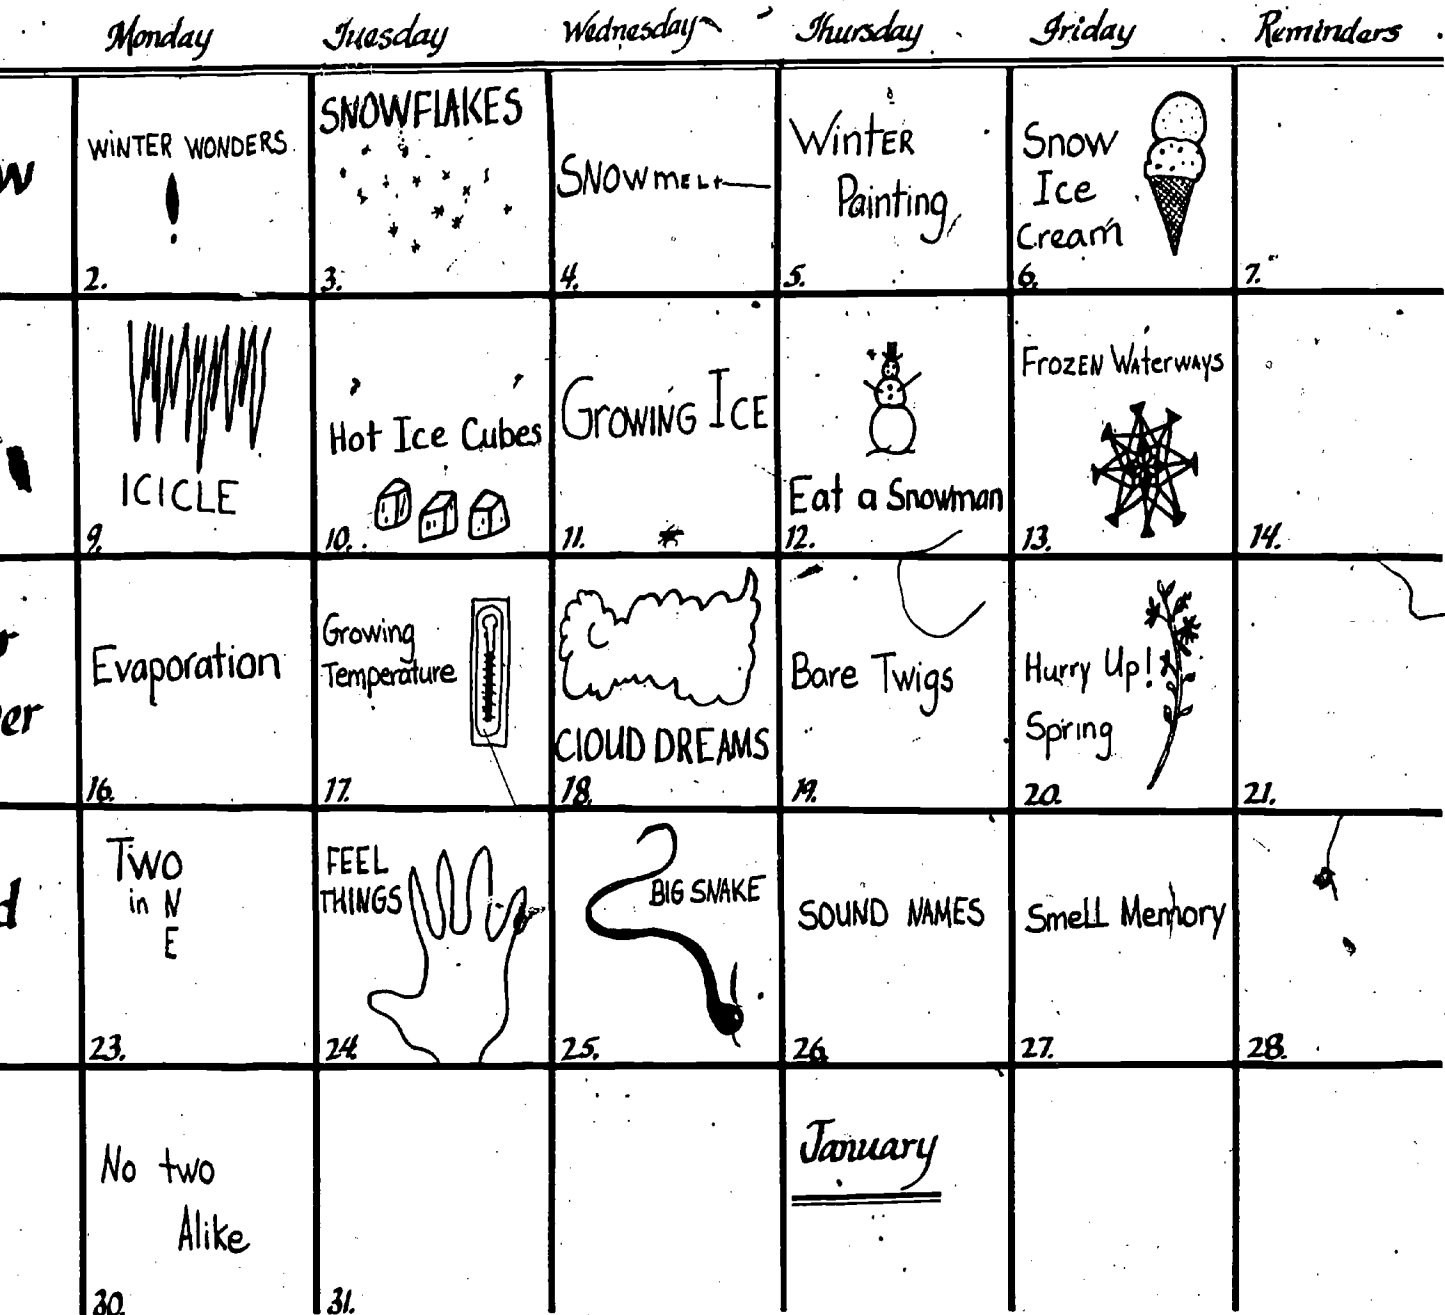 Monday Tuesday Wednesday Thursday Friday Reminders
w
WINTER WONDERS
!
2.
SNOWFLAKES
3.
SNOWMELT
4.
Winter
Painting
5.
Snow
Ice
Cream
6.
7.
ICICLE
9.
Hot Ice Cubes
10.
Growing Ice
11.
Eat a Snowman
12.
Frozen Waterways
13.
14.
er
Evaporation
16.
Growing
Temperature
17.
CLOUD DREAMS
18.
Bare Twigs
19.
Hurry Up!
Spring
20.
21.
d
Two
in N
E
23.
FEEL
THINGS
24.
BIG SNAKE
25.
SOUND NAMES
26.
Smell Memory
27.
28.
No two
Alike
30.
31.
January